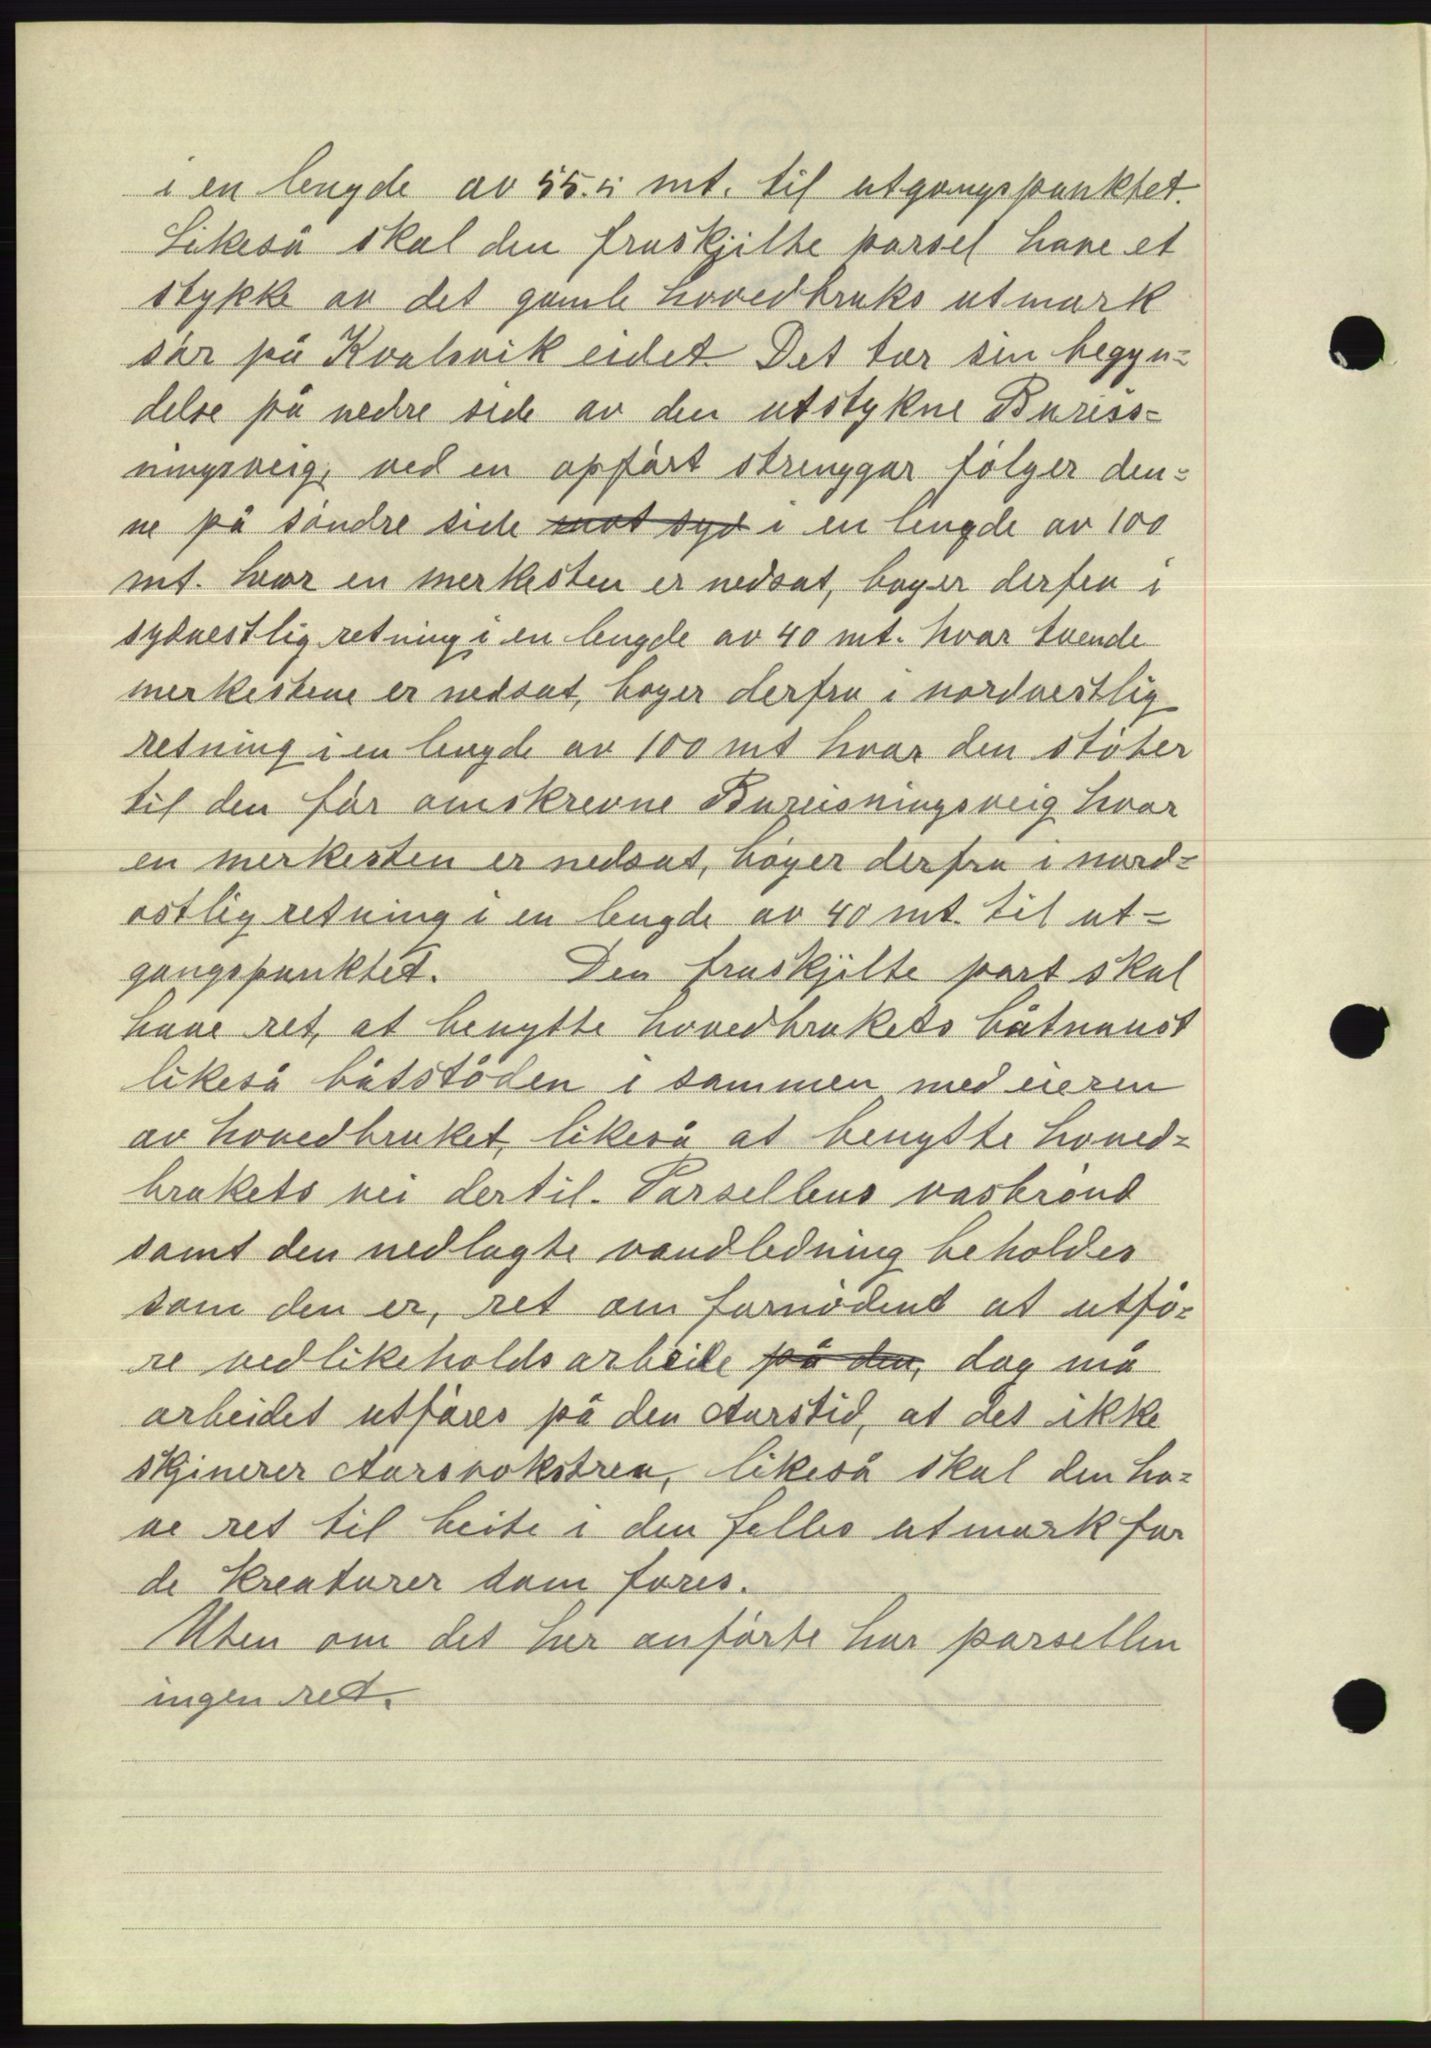 i en lengde av 55.5 mt. til utgangspunktet.
Likeså skal den fraskjilte parsel have et
stykke av det gamle hovedbruks utmark
sør på Kvalsvik eidet. Det tar sin begyn=
delse på nedre side av den utstykne Bureis=
ningsveig, ved en opført strenggar følger den=
ne på søndre side ~~mot syd~~ i en lengde av 100
mt. hvor en merkesten er nedsat, bøyer derfra i
sydvestlig retning i en lengde av 40 mt. hvor tvende
merkestene er nedsat, bøyer derfra i nordvestlig
retning i en lengde av 100 mt hvor den støter
til den før omskrevne Bureisningsveig hvor
en merkesten er nedsat, bøyer derfra i nord=
østlig retning i en lengde av 40 mt. til ut=
gangspunktet. Den fraskjilte part skal
have ret, at benytte hovedbrukets båtnaust
likeså båtstøden i sammen med eieren
av hovedbruket, likeså at benytte hoved=
brukets vei dertil. Parsellens vasbrønd
samt den nedlagte vandledning beholdes
som den er, ret om fornødent at utfø=
re vedlikeholds arbeide ~~på den,~~ dog må
arbeidet utføres på den Aarstid, at det ikke
skjinerer Aarsvokstren, likeså skal den ha=
ve ret til beite i den felles utmark for
de kreaturer som fores.
Uten om det her anførte har parsellen
ingen ret.